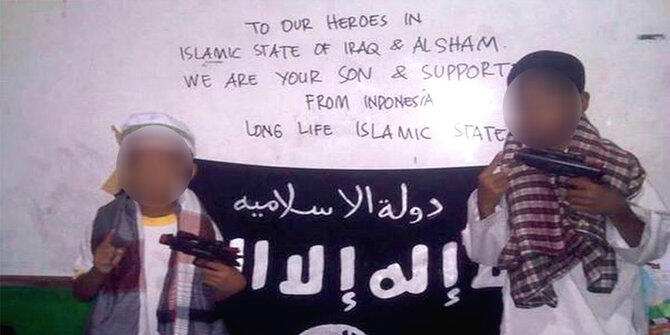 TO OUR HEROES IN
ISLAMIC STATE OF IRAQ & ALSHAM.
WE ARE YOUR SON & SUPPORT
FROM INDONESIA
LONG LIFE ISLAMIC STATE
دولة الاسلاميه
إله إلا